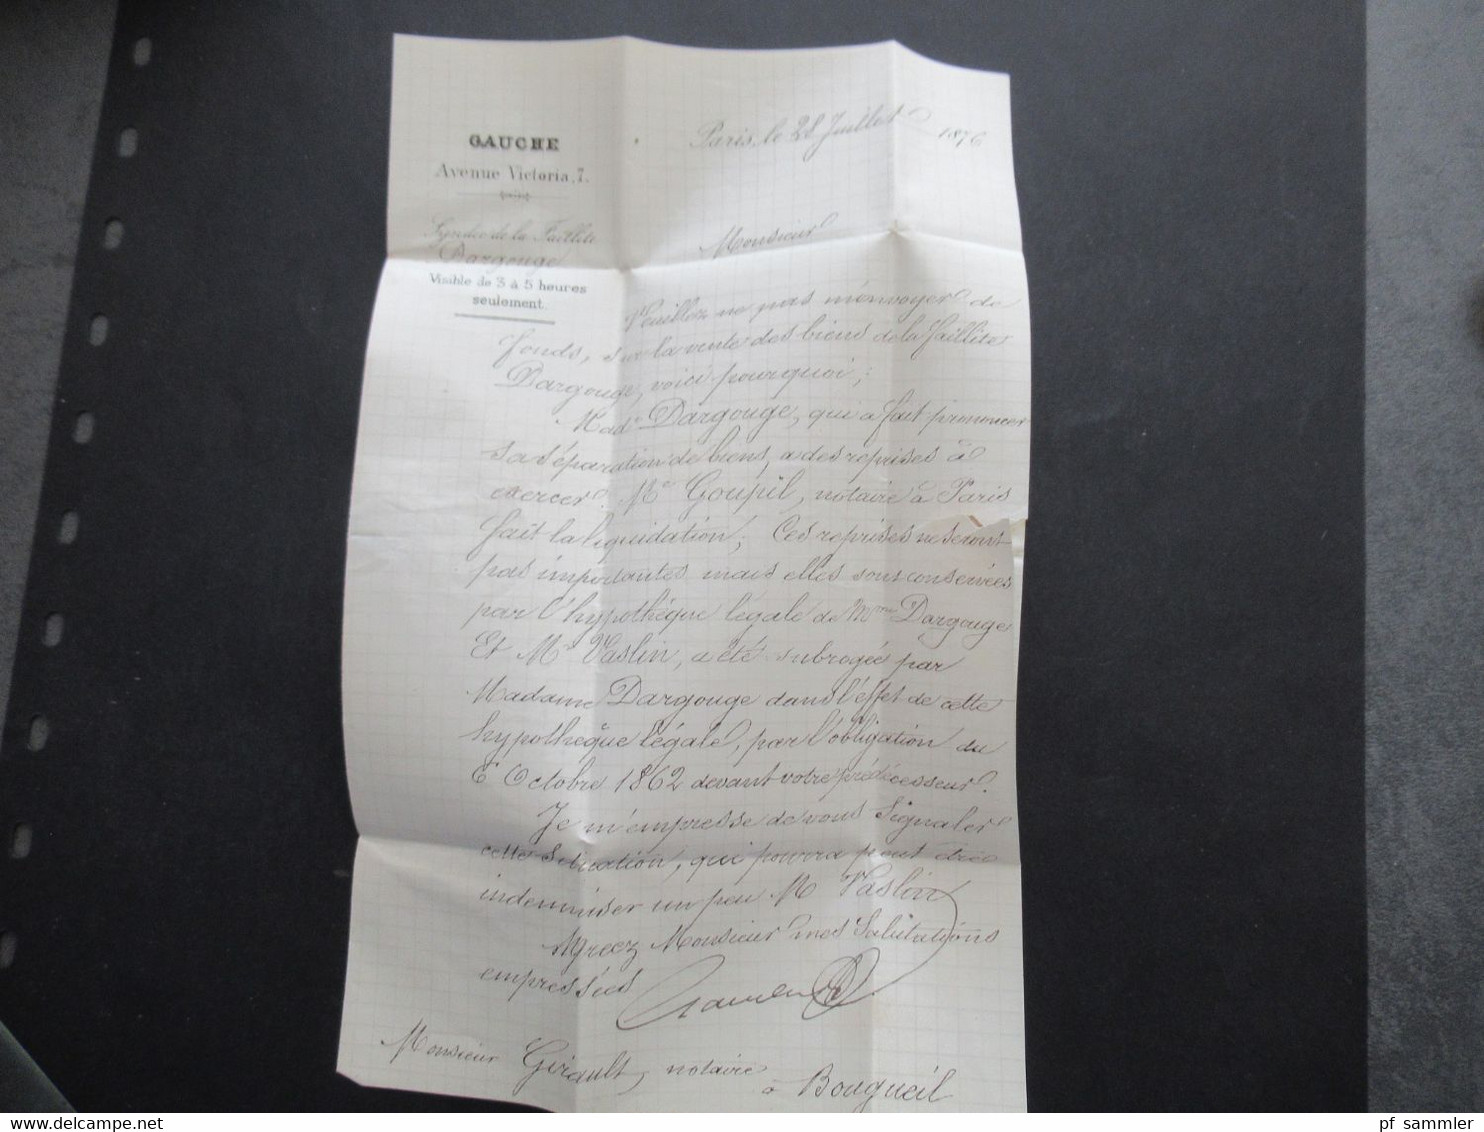 GAUCHE
Avenue Victoria, 7.
Paris, le 28 Juillet 1876
Syndic de la Faillite
Dargouge
Visible de 3 à 5 heures
seulement.
Monsieur
Veuillez ne pas m'envoyer de
fonds, sur la vente des biens de la faillite
Dargouge, voici pourquoi;
Made Dargouge, qui a fait prononcer
sa séparation de biens, a des reprises à
exercer. Me Goupil, notaire à Paris
fait la liquidation; Ces reprises ne seront
pas importantes mais elles sont conservées
par l'hypothèque légale de Mme Dargouge
Et Mr Vaslin, a été subrogée par
Madame Dargouge dans l'effet de cette
hypothèque légale, par l'obligation du
6 Octobre 1862 devant votre prédécesseur.
Je m'empresse de vous signaler
cette situation, qui pourra peut être
indemniser un peu M Vaslin
Agréez Monsieur mes Salutations
empressées
Monsieur Girault, notaire
à Bougueil
pf_sammler